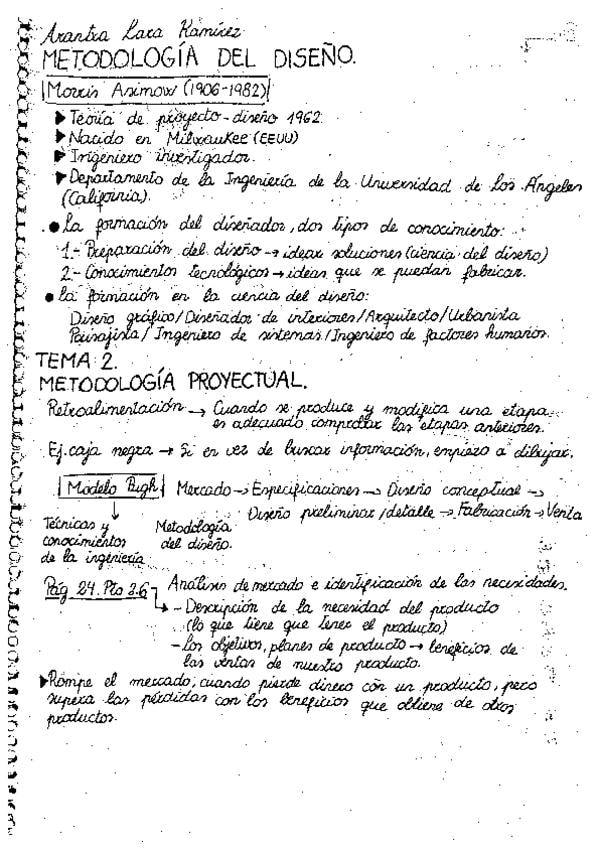 Arantxa Lara Ramírez
METODOLOGÍA DEL DISEÑO.
Morris Asimow (1906-1982)
▶ Teoría de proyecto-diseño 1962.
▶ Nacido en Milwaukee (EEUU)
▶ Ingeniero investigador.
▶ Departamento de la Ingeniería de la Universidad de Los Ángeles
(California).
● La formación del diseñador, dos tipos de conocimiento:
1.- Preparación del diseño → idear soluciones (ciencia del diseño)
2.- Conocimientos tecnológicos → ideas que se puedan fabricar.
● La formación en la ciencia del diseño:
Diseño gráfico/Diseñador de interiores/Arquitecto/Urbanista
Paisajista/Ingeniero de sistemas/Ingeniero de factores humanos.
TEMA 2.
METODOLOGÍA PROYECTUAL.
Retroalimentación → Cuando se produce y modifica una etapa
es adecuado comprobar las etapas anteriores.
Ej. caja negra → Si en vez de buscar información, empiezo a dibujar.
Modelo Pugh Mercado → Especificaciones → Diseño conceptual →
Diseño preliminar/detalle → Fabricación → Venta
Técnicas y conocimientos de la ingeniería
Metodología del diseño.
Pág 24. Pto 3.6 Análisis de mercado e identificación de las necesidades.
- Descripción de la necesidad del producto
(lo que tiene que tener el producto)
- Los objetivos, planes de producto → beneficios de
las ventas de nuestro producto.
▶ Rompe el mercado; cuando pierde dinero con un producto, pero
supera las pérdidas con los beneficios que obtiene de otros
productos.